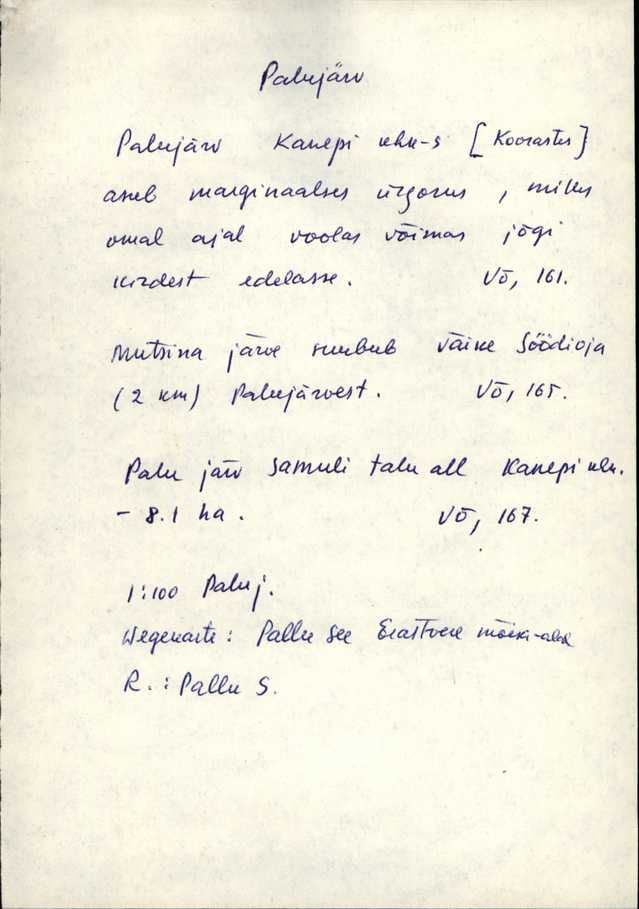 Palujärv
Palujärv Kanepi khk-s [Kooraste]
aseb marginaalses ürgorus, milles
omal ajal voolas võimas jõgi
kirdest edelasse. Võ, 161.
Mutsina järve suubub väike Söödioja
(2 km) Palujärvest. Võ, 165.
Palu järv Samuli talu all Kanepi khk.
- 8.1 ha. Võ, 167.
1:100 Paluj.
Wegekarte: Pallu See Erastvere
R.: Pallu S.